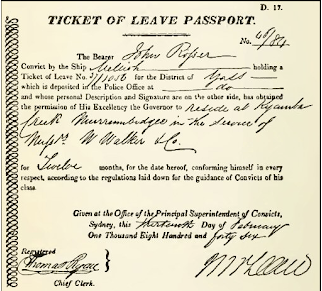 D. 17.
TICKET OF LEAVE PASSPORT.
No. 46/84
The Bearer John Rosser
Convict by the Ship Mellish holding a
Ticket of Leave No. /1056 for the District of Yass
which is deposited in the Police Office at do
and whose personal Description and Signature are on the other side, has obtained
the permission of His Excellency the Governor to reside at Kyamba
Creek Murrumbidgee in the service of
Messrs. W Walker & Co.
for Twelve months, for the date hereof, conforming himself in every
respect, according to the regulations laid down for the guidance of Convicts of his
class.
Given at the Office of the Principal Superintendent of Convicts,
Sydney, this thirteenth Day of February
One Thousand Eight Hundred and forty six
Registered
Thomas Ryan
Chief Clerk.